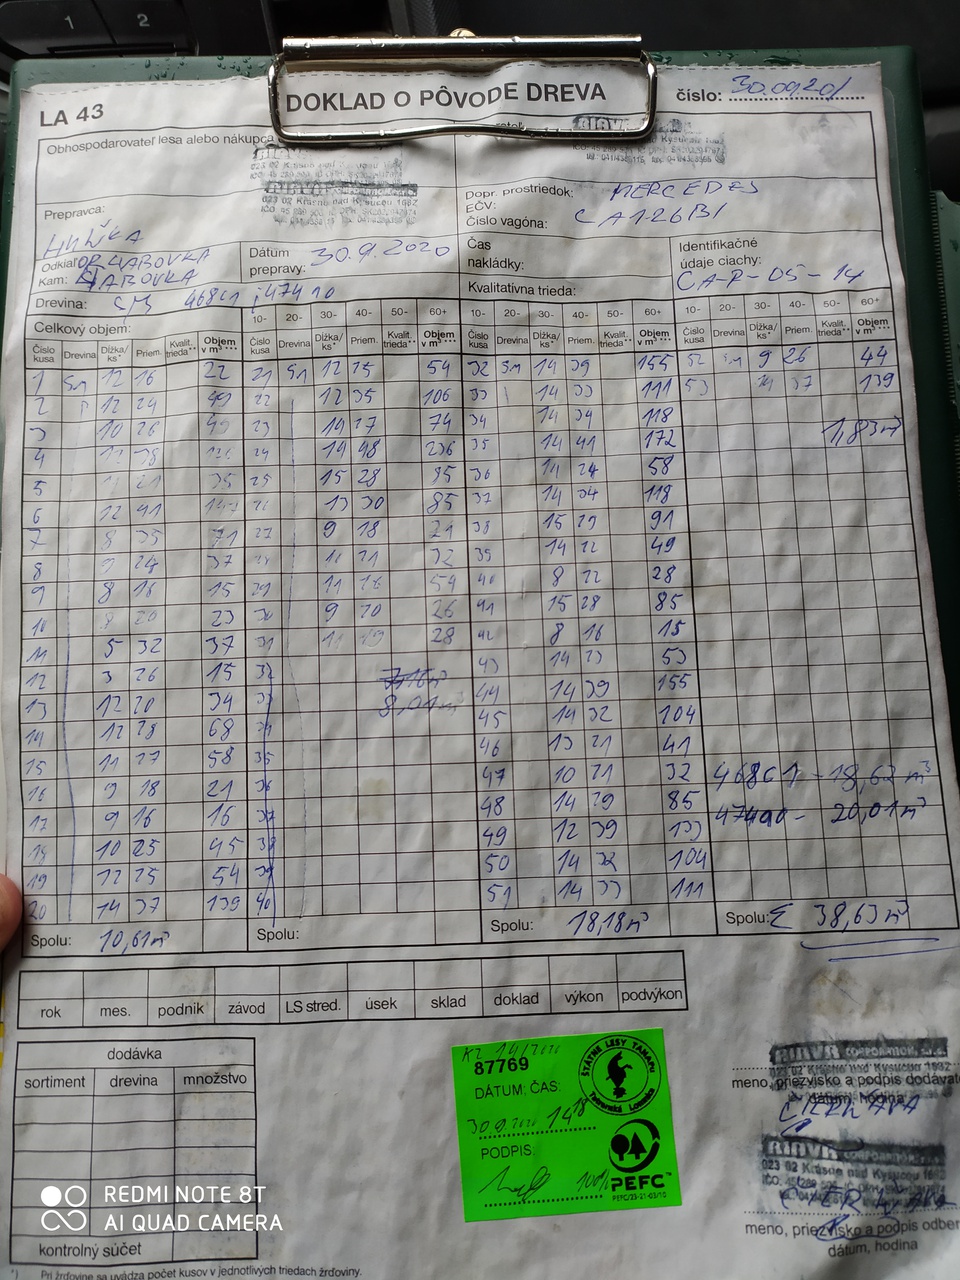 1 2
LA 43
DOKLAD O PÔVODE DREVA
číslo: 30.0920/
Obhospodarovateľ lesa alebo nákupca
Prepravca:
HUŇKA
Dopr. prostriedok: MERCEDES
EČV:
Číslo vagóna: CA126BI
Odkiaľ: ORAABOVKA
Kam: HABOVKA
Dátum prepravy: 30.9.2020
Čas nakládky:
Identifikačné údaje ciachy: CA-P-05-14
Drevina: SM 468C1 ; 474 10
Kvalitatívna trieda:
Celkový objem: 10- 20- 30- 40- 50- 60+ 10- 20- 30- 40- 50- 60+ 10- 20- 30- 40- 50- 60+
Číslo kusa Drevina Dĺžka/ks* Priem. Kvalit. trieda** Objem v m³ *** Číslo kusa Drevina Dĺžka/ks* Priem. Kvalit. trieda** Objem v m³ *** Číslo kusa Drevina Dĺžka/ks* Priem. Kvalit. trieda** Objem v m³ *** Číslo kusa Drevina Dĺžka/ks* Priem. Kvalit. trieda** Objem v m³ ***
1 Sm 12 16 22 21 Sm 12 25 54 32 Sm 14 39 155 52 Sm 9 26 44
2 12 24 49 22 12 35 106 33 14 33 111 53 14 37 139
3 10 26 49 23 14 27 74 34 14 34 118 1,83m³
4 24 14 48 236 35 14 41 172
5 35 25 15 28 85 36 14 24 58
6 12 41 26 13 30 85 37 14 34 118
7 8 35 71 27 9 18 21 38 15 29 91
8 9 24 37 28 11 21 32 39 14 22 49
9 8 16 15 29 11 54 40 8 22 28
10 8 20 23 30 9 20 26 41 15 28 85
11 5 32 37 31 11 19 28 42 8 16 15
12 3 26 15 32 7,16m³ 43 14 23 53
13 12 20 34 33 8,01m³ 44 14 39 155
14 12 28 68 34 45 14 32 104
15 11 27 58 35 46 13 21 41
16 9 18 21 36 47 10 21 32 468C1 - 18,62 m³
17 9 16 16 37 48 14 29 85 47410 - 20,01m³
18 10 25 45 38 49 12 39 133
19 12 25 54 39 50 14 32 104
20 14 37 139 40 51 14 33 111
Spolu: 10,61m³ Spolu: Spolu: 18,18m³ Spolu: Σ 38,63m³
rok mes. podnik závod LS stred. úsek sklad doklad výkon podvýkon
dodávka
sortiment drevina množstvo
kontrolný súčet
KZ 14/2020
87769
DÁTUM; ČAS:
30.9.2020 14 18
PODPIS:
100%
ŠTÁTNE LESY TANAPU
Tatranská Lomnica
PEFC™
PEFC/23-21-03/10
RIAVA CORPORATION, s.r.o.
023 02 Krásno nad Kysucou 1982
meno, priezvisko a podpis dodávate
dátum, hodina
ČIERŇAVA
RIAVA CORPORATION
023 02 Krásno nad Kysucou
meno, priezvisko a podpis odber
dátum, hodina
REDMI NOTE 8T
AI QUAD CAMERA
*) Pri žrďovine sa uvádza počet kusov v jednotlivých triedach žrďoviny.